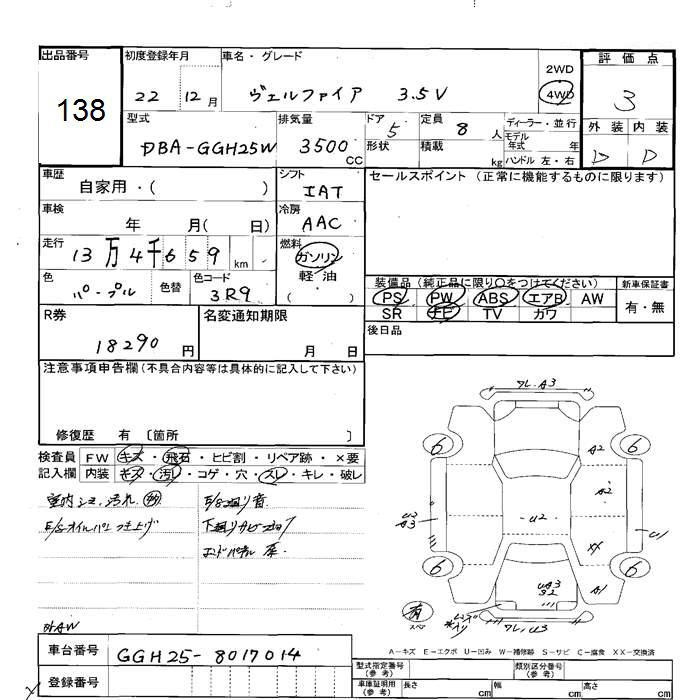 出品番号
138
初度登録年月
22 12月
車名・グレード
ヴェルファイア 3.5V
2WD
4WD
評価点
3
型式
DBA-GGH25W
排気量
3500 CC
ドア 5
形状
定員 8 人
積載 kg
ディーラー・並行
モデル年式 年
ハンドル 左・右
外装 内装
D D
車歴
自家用・( )
シフト
IAT
セールスポイント (正常に機能するものに限ります)
車検
年 月( 日)
冷房
AAC
走行
13万4千659 km
燃料
ガソリン
軽油
( )
色
パープル
色替
色コード
3R9
装備品 (純正品に限り○をつけてください)
PS PW ABS エアB AW
SR ナビ TV カワ
新車保証書
有・無
R券
18290 円
名変通知期限
月 日
後日品
注意事項申告欄 (不具合内容等は具体的に記入して下さい)
修復歴 有 〔箇所 〕
検査員記入欄
FW キズ・飛石・ヒビ割・リペア跡・×要
内装 キズ・汚レ・コゲ・穴・スレ・キレ・破レ
室内シミ、汚れ
E/Sオイルパンつき上げ
E/S廻り音
下廻りサビ
エンドパネル
外AW
ワレ、A3
A2
A2
U2
U2
A3
U1
XX
A1
UA3
S2
6
6
6
6
有
スペア
ワレ、U3
A-キズ E-エクボ U-凹み W-補修跡 S-サビ C-腐食 XX-交換済
車台番号
GGH25-8017014
登録番号
型式指定番号
(参考)
類別区分番号
(参考)
車庫証明用
(参考)
長さ cm
幅 cm
高さ cm